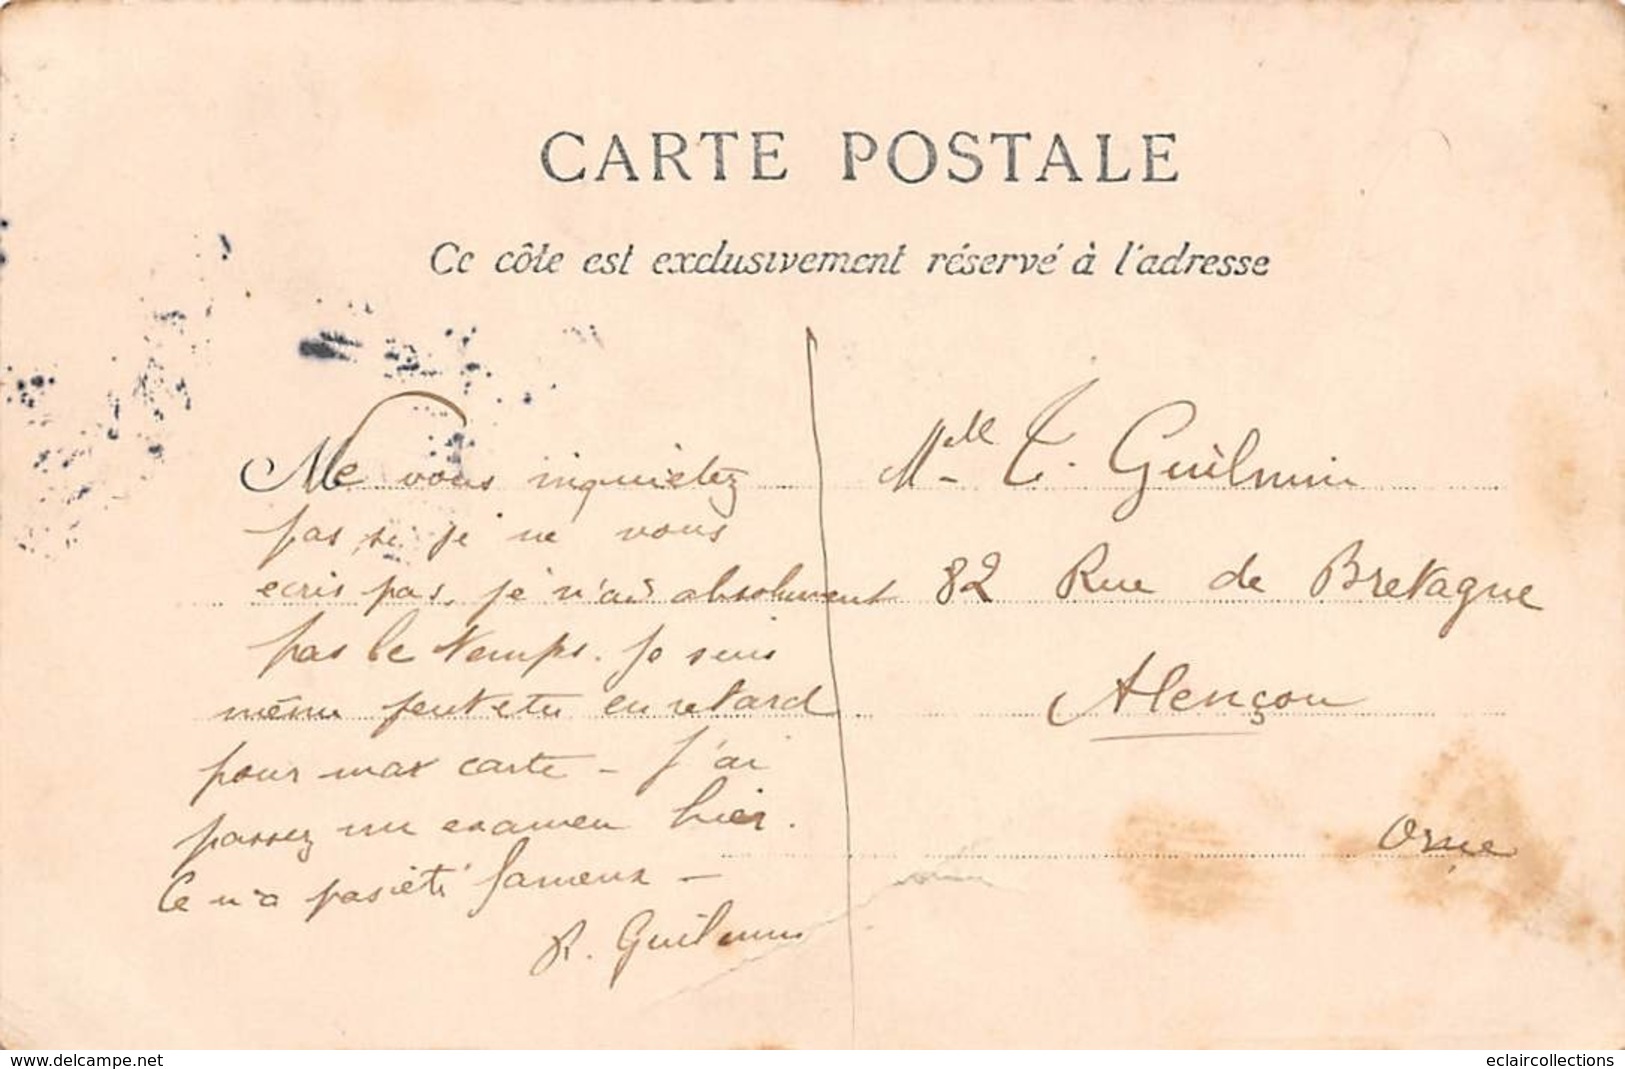 CARTE POSTALE
Ce côté est exclusivement réservé à l'adresse
Ne vous inquietez
pas si je ne vous
ecris pas, je n'ai absolument
pas le temps. Je suis
même peut etre en retard
pour max carte - J'ai
passez un examen hier.
Ce n'a pas été fameux -
R. Guilmin
Mlle T. Guilmin
82 Rue de Bretagne
Alençon
Orne
www.delcampe.net
eclaircollections